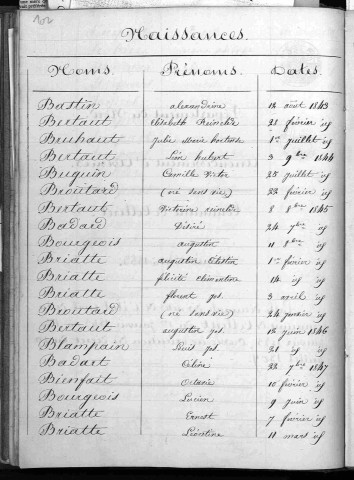 102
Naissances.
Noms. Prénoms. Dates.
Bastin alexandrine 12 août 1843
Bertaut élisabeth 21 février id
Bruhaut julie marie hortense 1er juillet id
Bertaut Léon hubert 3 9bre 1844
Buguin Camille Victor 25 juillet id
Broutard (né sans vie) 22 février id
Bertaut Victorine 8 8bre 1845
Badard Désiré 24 7bre id
Bourgeois augustin 11 8bre id
Briatte augustin Célestin 1er février id
Briatte félicité clémentine 14 id id
Briatte florent jph 3 avril id
Broutard (né sans vie) 24 janvier id
Bertaut augustin jph 12 juin 1846
Blampain Louis jph 21 id id
Badart Céline 22 7bre 1847
Bienfait Octavie 10 février id
Bourgeois Lucien 9 juin id
Briatte Ernest 7 février id
Briatte Léontine 11 mars id